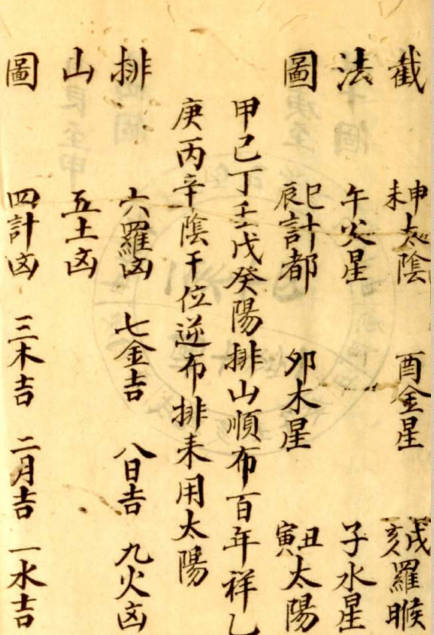 截 未申太陰 酉金星 戌亥羅睺
法 午火星 子水星
圖 辰巳計都 卯木星 寅丑太陽
甲己丁壬戊癸陽排山順布百年祥乙
庚丙辛陰干位逆布排來用太陽
排 六羅凶 七金吉 八日吉 九火凶
山 五土凶
圖 四計凶 三木吉 二月吉 一水吉